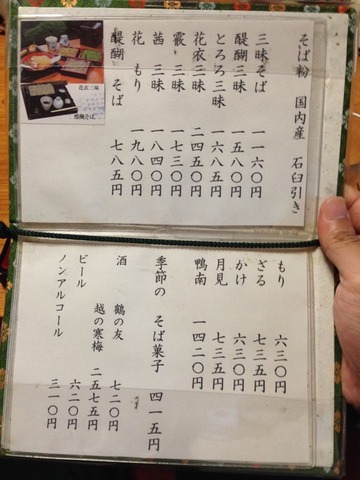 そば粉 国内産 石臼引き
三昧そば 一一六〇円
醍醐三昧 一五八〇円
とろろ三昧 一六八五円
花衣三昧 二四五〇円
霰 三昧 一七三〇円
茜 三昧 一八四〇円
花 もり 一九八〇円
醍醐 そば 七八五円
花衣三昧
醍醐そば
もり 六三〇円
ざる 七三五円
かけ 六三〇円
月見 七三五円
鴨南 一四二〇円
季節の そば菓子 四一五円
酒 鶴の友 七二〇円
越の寒梅 二五七五円
ビール 六二〇円
ノンアルコール 三一〇円